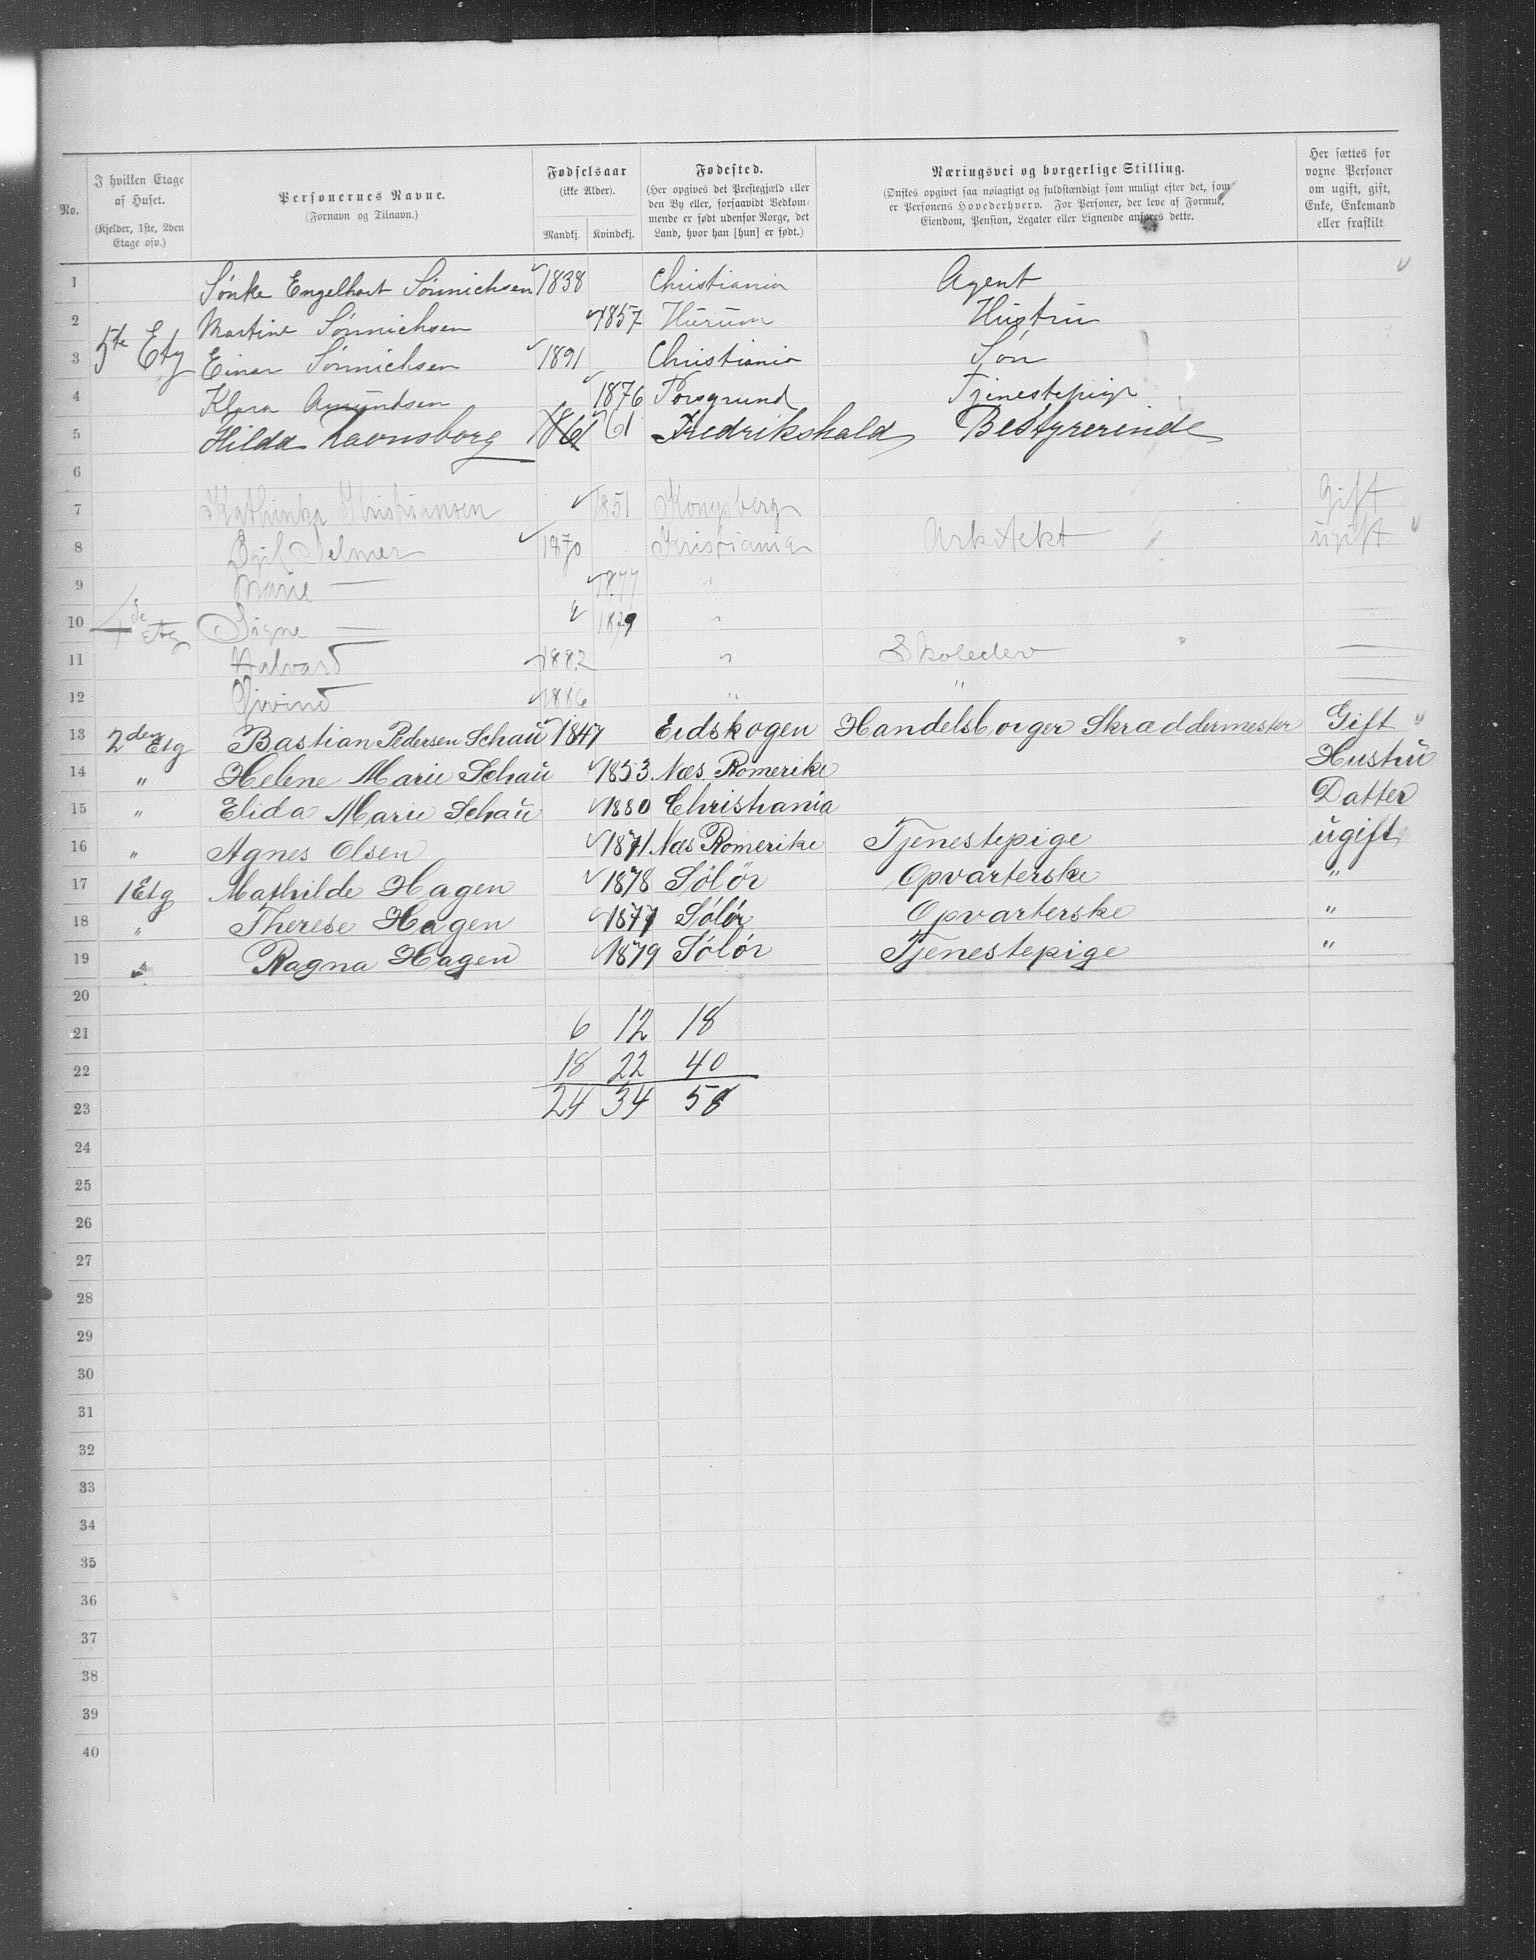 No. | I hvilken Etage af Huset. (Kjelder, 1ste, 2den Etage osv.) | Personernes Navne. (Fornavn og Tilnavn.) | Fødselsaar (ikke Alder). Mandkj. Kvindekj. | Fødested. (Her opgives det Prestegjæld eller den By eller, forsaavidt Vedkommende er født udenfor Norge, det Land, hvor han [hun] er født.) | Næringsvei og borgerlige Stilling. (Ønskes opgivet saa nøiagtigt og fuldstændigt som muligt efter det, som er Personens Hovederhverv. For Personer, der leve af Formue, Eiendom, Pension, Legater eller Lignende anføres dette.) | Her sættes for voxne Personer om ugift, gift, Enke, Enkemand eller fraskilt
1 Sønke Engelhart Sønnichsen 1838 Christiania Agent
2 Martine Sønnichsen 1857 Hurum Hustru
3 5te Etg Einar Sønnichsen 1891 Christiania Søn
4 Klara Amundsen 1876 Porsgrund Tjenestepige
5 Hilda Ravnsborg 1861 61 Fredrikshald Bestyrerinde
6
7 Kathinka Kristiansen 1851 Kongsberg Gift
8 Egil Selmer 1870 Kristiania Arkitekt ugift
9 Marie — 1877 "
10 4de Etg Signe — 1879 " —
11 Halvard 1882 " Skoleelev —
12 Øivind 1886 " " —
13 2den Etg Bastian Pedersen Schau 1847 Eidskogen Handelsborger Skræddermester Gift
14 " Helene Marie Schau 1853 Næs Romerike Hustru
15 " Elida Marie Schau 1880 Christiania Datter
16 " Agnes Olsen 1871 Næs Romerike Tjenestepige ugift
17 1 Etg Mathilde Hagen 1878 Sölör Opvarterske "
18 " Therese Hagen 1877 Sölör Opvarterske "
19 " Ragna Hagen 1879 Sölör Tjenestepige "
20
21 6 12 18
22 18 22 40
23 24 34 58
24
25
26
27
28
29
30
31
32
33
34
35
36
37
38
39
40